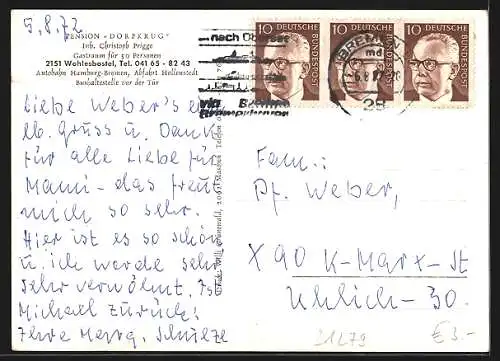 5.8.72
PENSION «DORFKRUG»
Inh. Christoph Prigge
Gastraum für 50 Personen
2151 Wohlesbostel, Tel. 041 65 - 82 43
Autobahn Hamburg-Bremen, Abfahrt Hollenstedt
Bushaltestelle vor der Tür
...nach Übersee
via
10 DEUTSCHE BUNDESPOST
10 DEUTSCHE BUNDESPOST
10 DEUTSCHE BUNDESPOST
BREMEN
28
Liebe Weber's e
lb. Gruss u. Dank
für alle Liebe für
Mami - das freut
mich so sehr.
Hier ist es so schön
u. ich werde sehr
sehr verwöhnt. Ist
Michael zurück?
Ihre Marg. Schulze
Fam:
Pf. Weber,
X 90 K-Marx-St
Uhlich - 30.
21279
€ 3.-